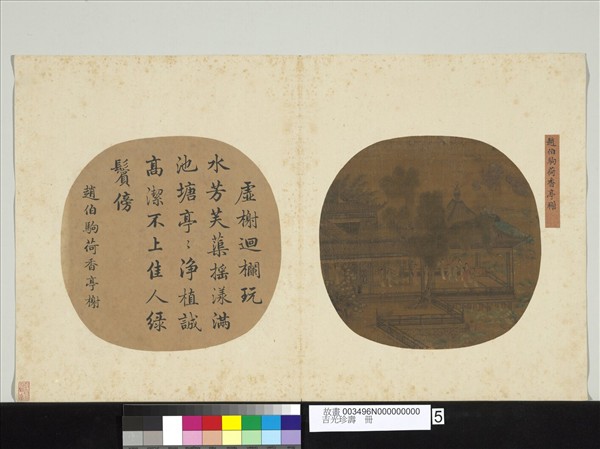 趙伯駒荷香亭榭
虛榭迴欄玩
水芳芙蕖搖漾滿
池塘亭〻淨植誠
高潔不上佳人綠
鬢傍
趙伯駒荷香亭榭
故畫 003496N000000000
吉光珍壽 冊
5